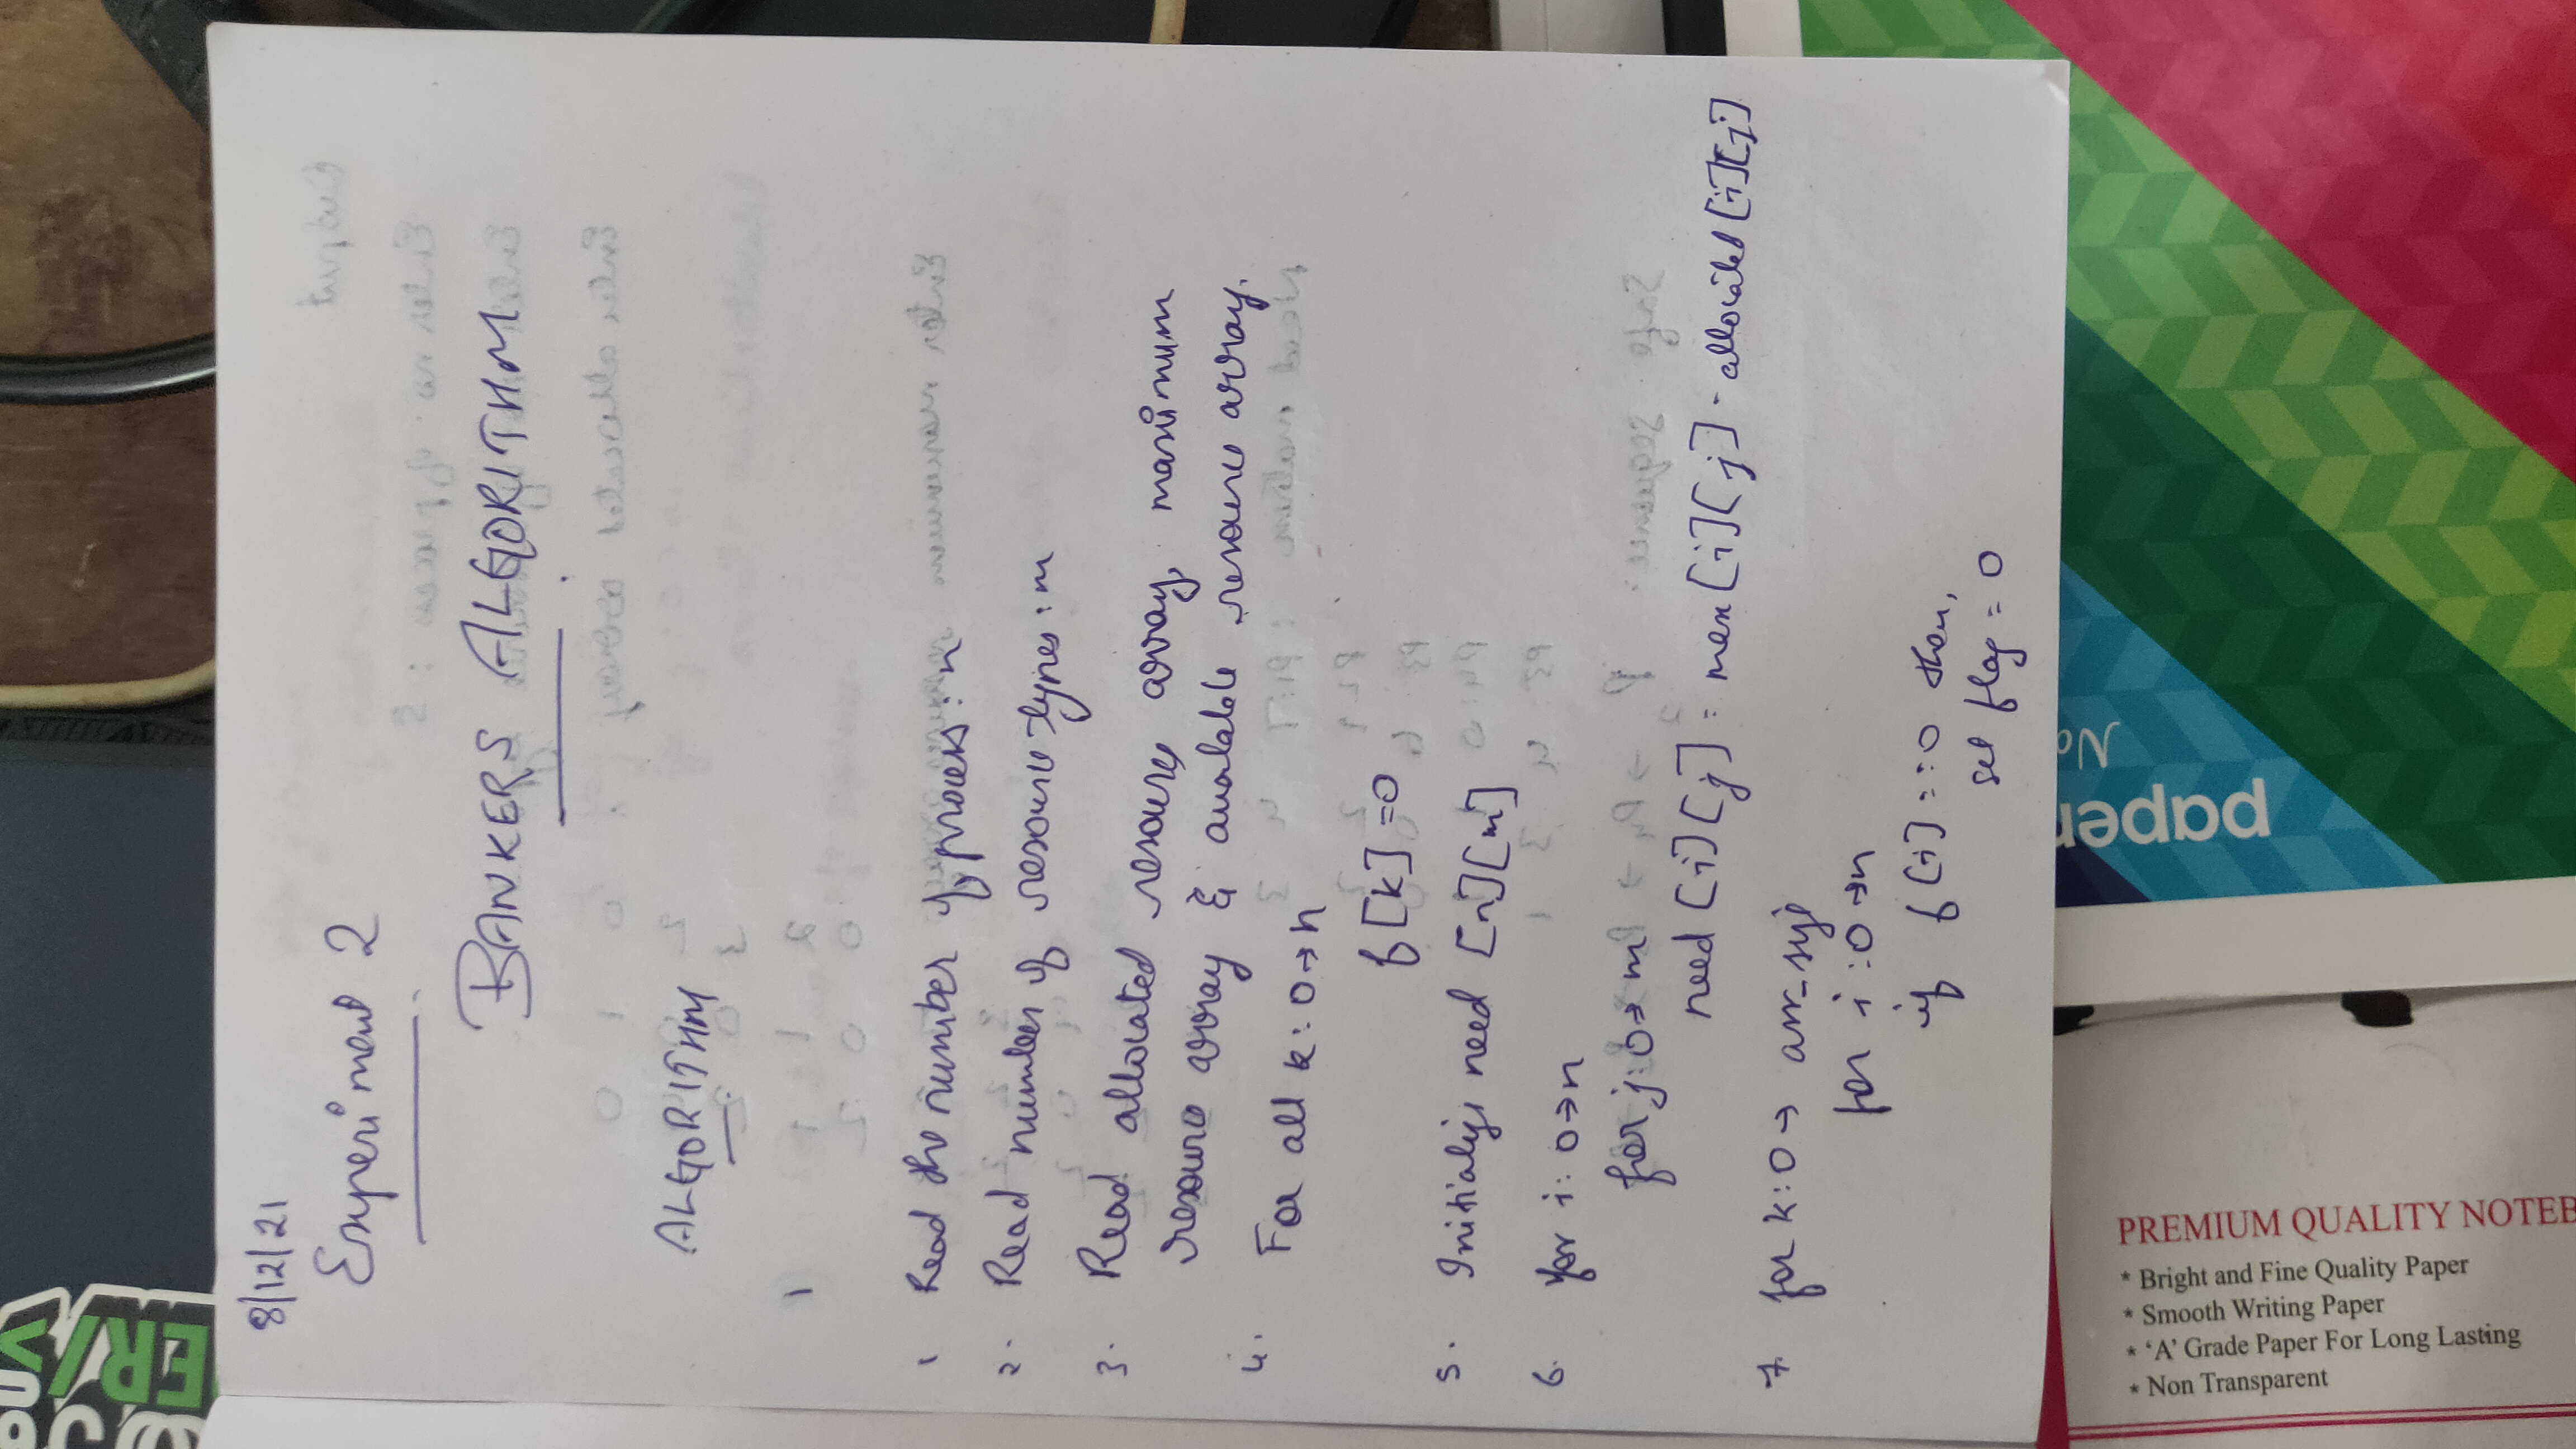 ER/>
8/12/21
Experiment 2
BANKERS ALGORITHM
ALGORITHM
1
1 Read the number of process : n
2. Read number of resource types : m
3. Read allocated resource array, maximum
resource array & available resource array.
4. For all k : 0 → n
f[k] = 0
5. Initialize need [n][m]
6. for i : 0 → n
for j : 0 → m
need [i][j] = max [i][j] - allocated [i][j]
7. for k : 0 → arr_size
for i : 0 → n
if f[i] == 0 then,
set flag = 0
PREMIUM QUALITY NOTEB
* Bright and Fine Quality Paper
* Smooth Writing Paper
* 'A' Grade Paper For Long Lasting
* Non Transparent
paper
No